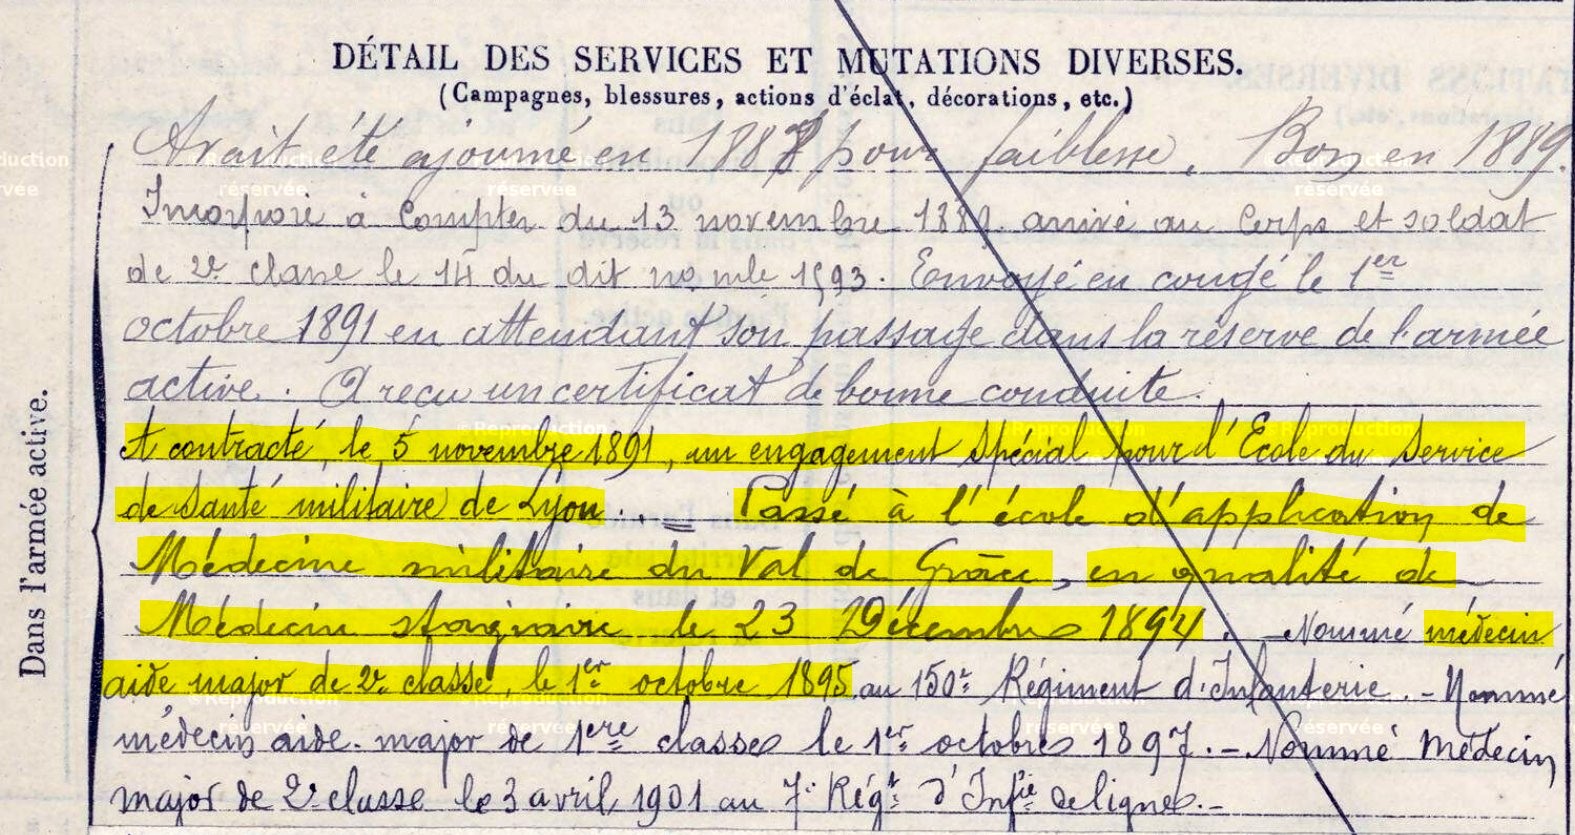 DÉTAIL DES SERVICES ET MUTATIONS DIVERSES.
(Campagnes, blessures, actions d'éclat, décorations, etc.)
Avait été ajourné en 1888 pour faiblesse, Bon en 1889.
Incorporé à compter du 13 novembre 1889. arrivé au Corps et soldat
de 2e classe le 14 du dit no mle 1593. Envoyé en congé le 1er
octobre 1891 en attendant son passage dans la réserve de l'armée
active. A reçu un certificat de bonne conduite.
A contracté, le 5 novembre 1891, un engagement spécial pour l'École du Service
de Santé militaire de Lyon. Passé à l'école d'application de
Médecine militaire du Val de Grâce, en qualité de
Médecin stagiaire le 23 Décembre 1894. _ Nommé médecin
aide major de 2e classe, le 1er octobre 1895 au 150e Régiment d'Infanterie. - Nommé
médecin aide-major de 1ere classe le 1er octobre 1897. - Nommé Médecin
major de 2e classe le 3 avril 1901 au 7e Régt d'Infie de ligne. -
Dans l'armée active.
©Reproduction
réservée